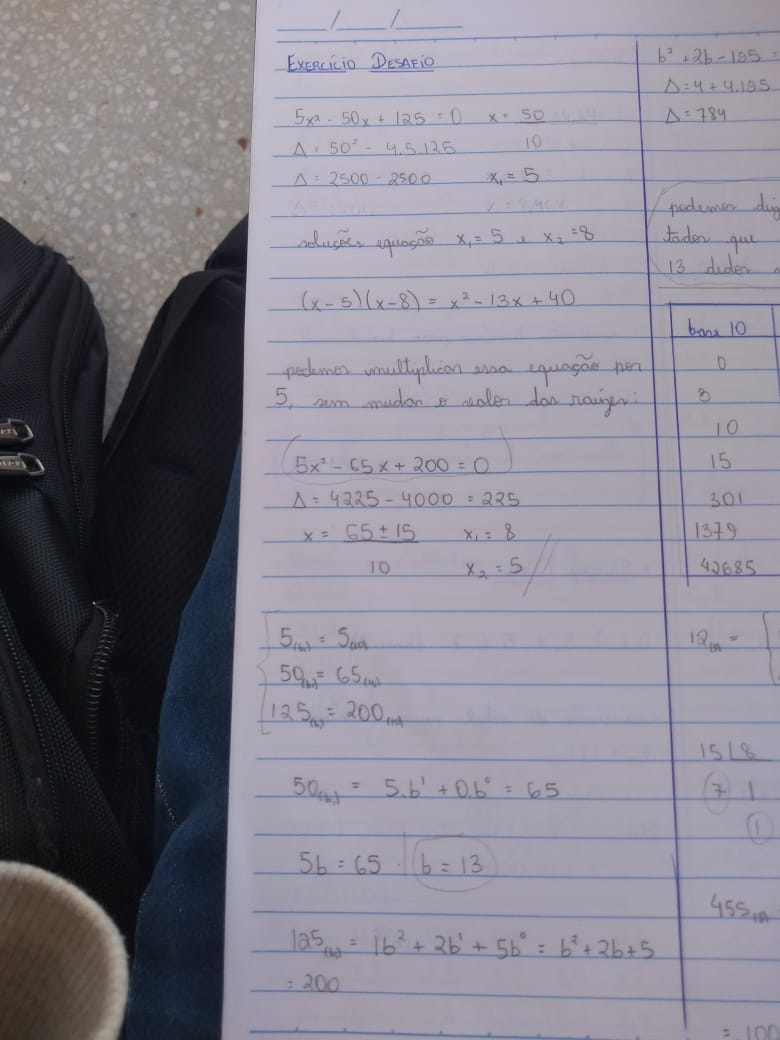 EXERCÍCIO DESAFIO
5x² - 50x + 125 = 0 x = 50
10
Δ = 50² - 4.5.125
Δ = 2500 - 2500 x₁ = 5
soluções equação x₁ = 5 e x₂ = 8
(x-5)(x-8) = x² - 13x + 40
podemos multiplicar essa equação por
5, sem mudar o valor das raízes:
5x² - 65x + 200 = 0
Δ = 4225 - 4000 = 225
x = 65 ± 15 x₁ = 8
10 x₂ = 5
5(b) = 5(10)
50(b) = 65(10)
125(b) = 200(10)
50(b) = 5.b¹ + 0.b⁰ = 65
5b = 65 b = 13
125(b) = 1b² + 2b¹ + 5b⁰ = b² + 2b + 5
= 200
b² + 2b - 195 =
Δ = 4 + 4.195
Δ = 784
podemos
que
13 dedos
base 10
0
8
10
15
301
1379
42685
12
15 8
7 1
1
455
= 100